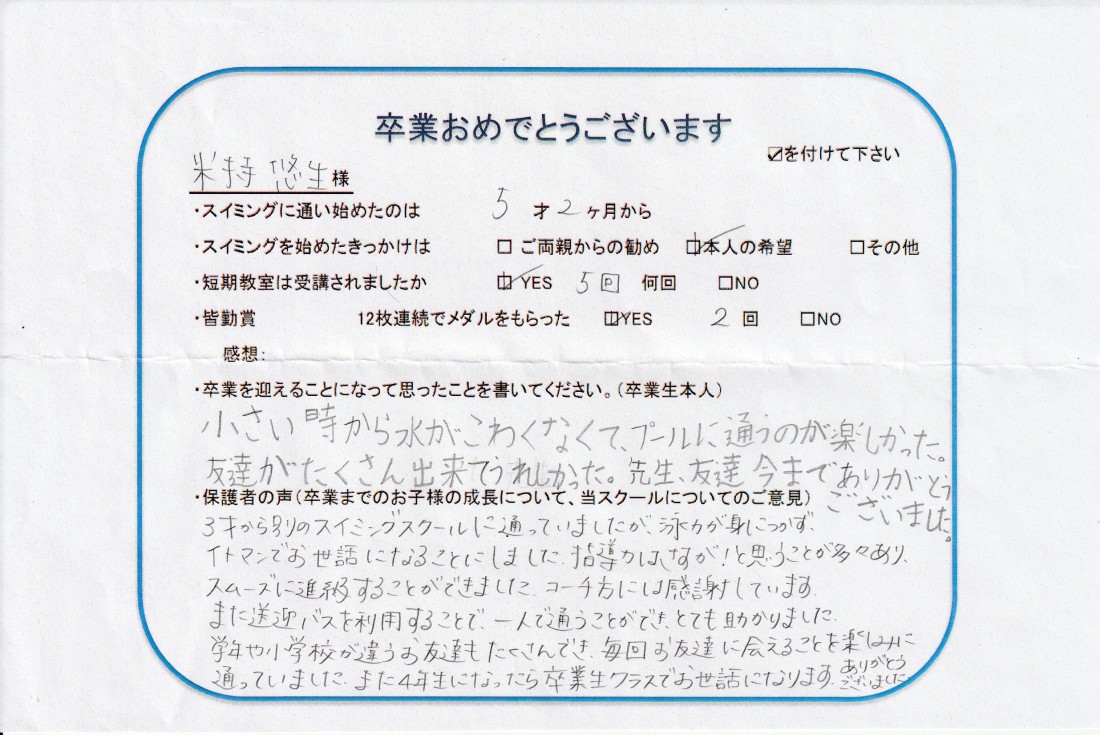 卒業おめでとうございます
☑を付けて下さい
米持 悠生様
・スイミングに通い始めたのは 5 才 2 ヶ月から
・スイミングを始めたきっかけは □ ご両親からの勧め ☑本人の希望 □その他
・短期教室は受講されましたか ☑ YES 5回 何回 □NO
・皆勤賞 12枚連続でメダルをもらった ☑YES 2 回 □NO
感想:
・卒業を迎えることになって思ったことを書いてください。(卒業生本人)
小さい時から水がこわくなくて、プールに通うのが楽しかった。
友達がたくさん出来てうれしかった。先生、友達今までありがとう
ございました。
・保護者の声(卒業までのお子様の成長について、当スクールについてのご意見)
3才から別のスイミングスクールに通っていましたが、泳力が身につかず、
イトマンでお世話になることにしました。指導力は、さすが!と思うことが多々あり、
スムーズに進級することができました。コーチ方には感謝しています。
また送迎バスを利用することで、一人で通うことができ、とても助かりました。
学年や小学校が違うお友達もたくさんでき、毎回お友達に会えることを楽しみに
通っていました。また4年生になったら卒業生クラスでお世話になります。ありがとう
ございました